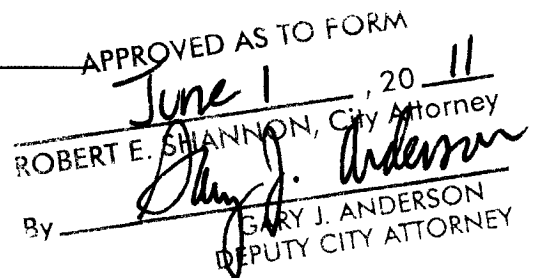 APPROVED AS TO FORM
June 1, 20 11
ROBERT E. SHANNON, City Attorney
By Gary J. Anderson
GARY J. ANDERSON
DEPUTY CITY ATTORNEY